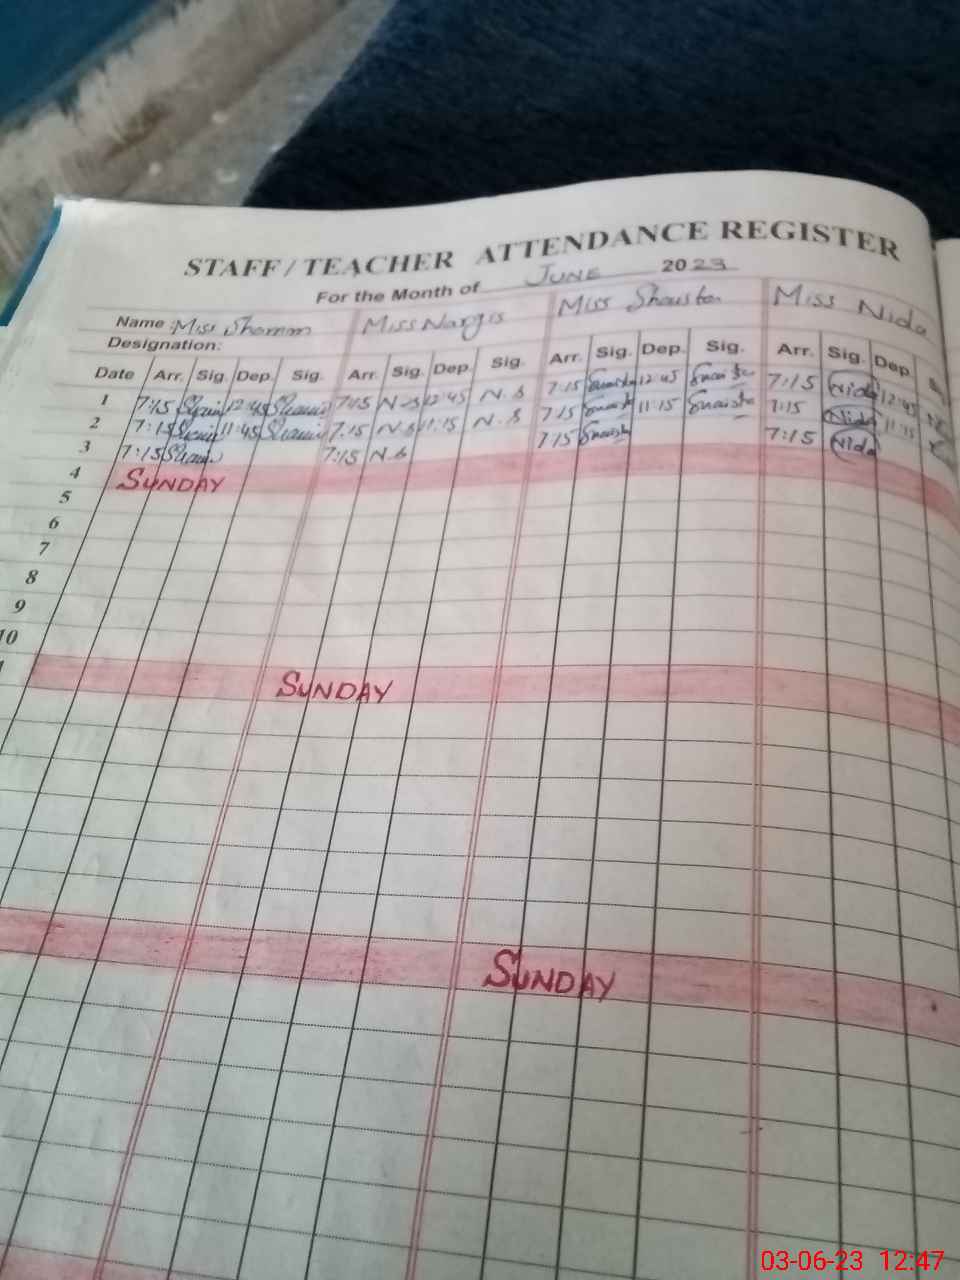 STAFF / TEACHER ATTENDANCE REGISTER
For the Month of JUNE 2023
Name: Miss Miss Nargis Miss Shaista Miss Nida
Designation:
Date Arr. Sig. Dep. Sig. Arr. Sig. Dep. Sig. Arr. Sig. Dep. Sig. Arr. Sig. Dep.
1 7:15 12:45 7:15 N.S 12:45 N.S 7:15 Shaista 12:45 Shaista 7:15 Nida 12:45
2 7:15 11:45 7:15 N.S 11:15 N.S 7:15 Shaista 11:15 Shaista 7:15 Nida 11:15
3 7:15 7:15 N.S 7:15 Shaista 7:15 Nida
4 SUNDAY
5
6
7
8
9
10
SUNDAY
SUNDAY
03-06-23 12:47